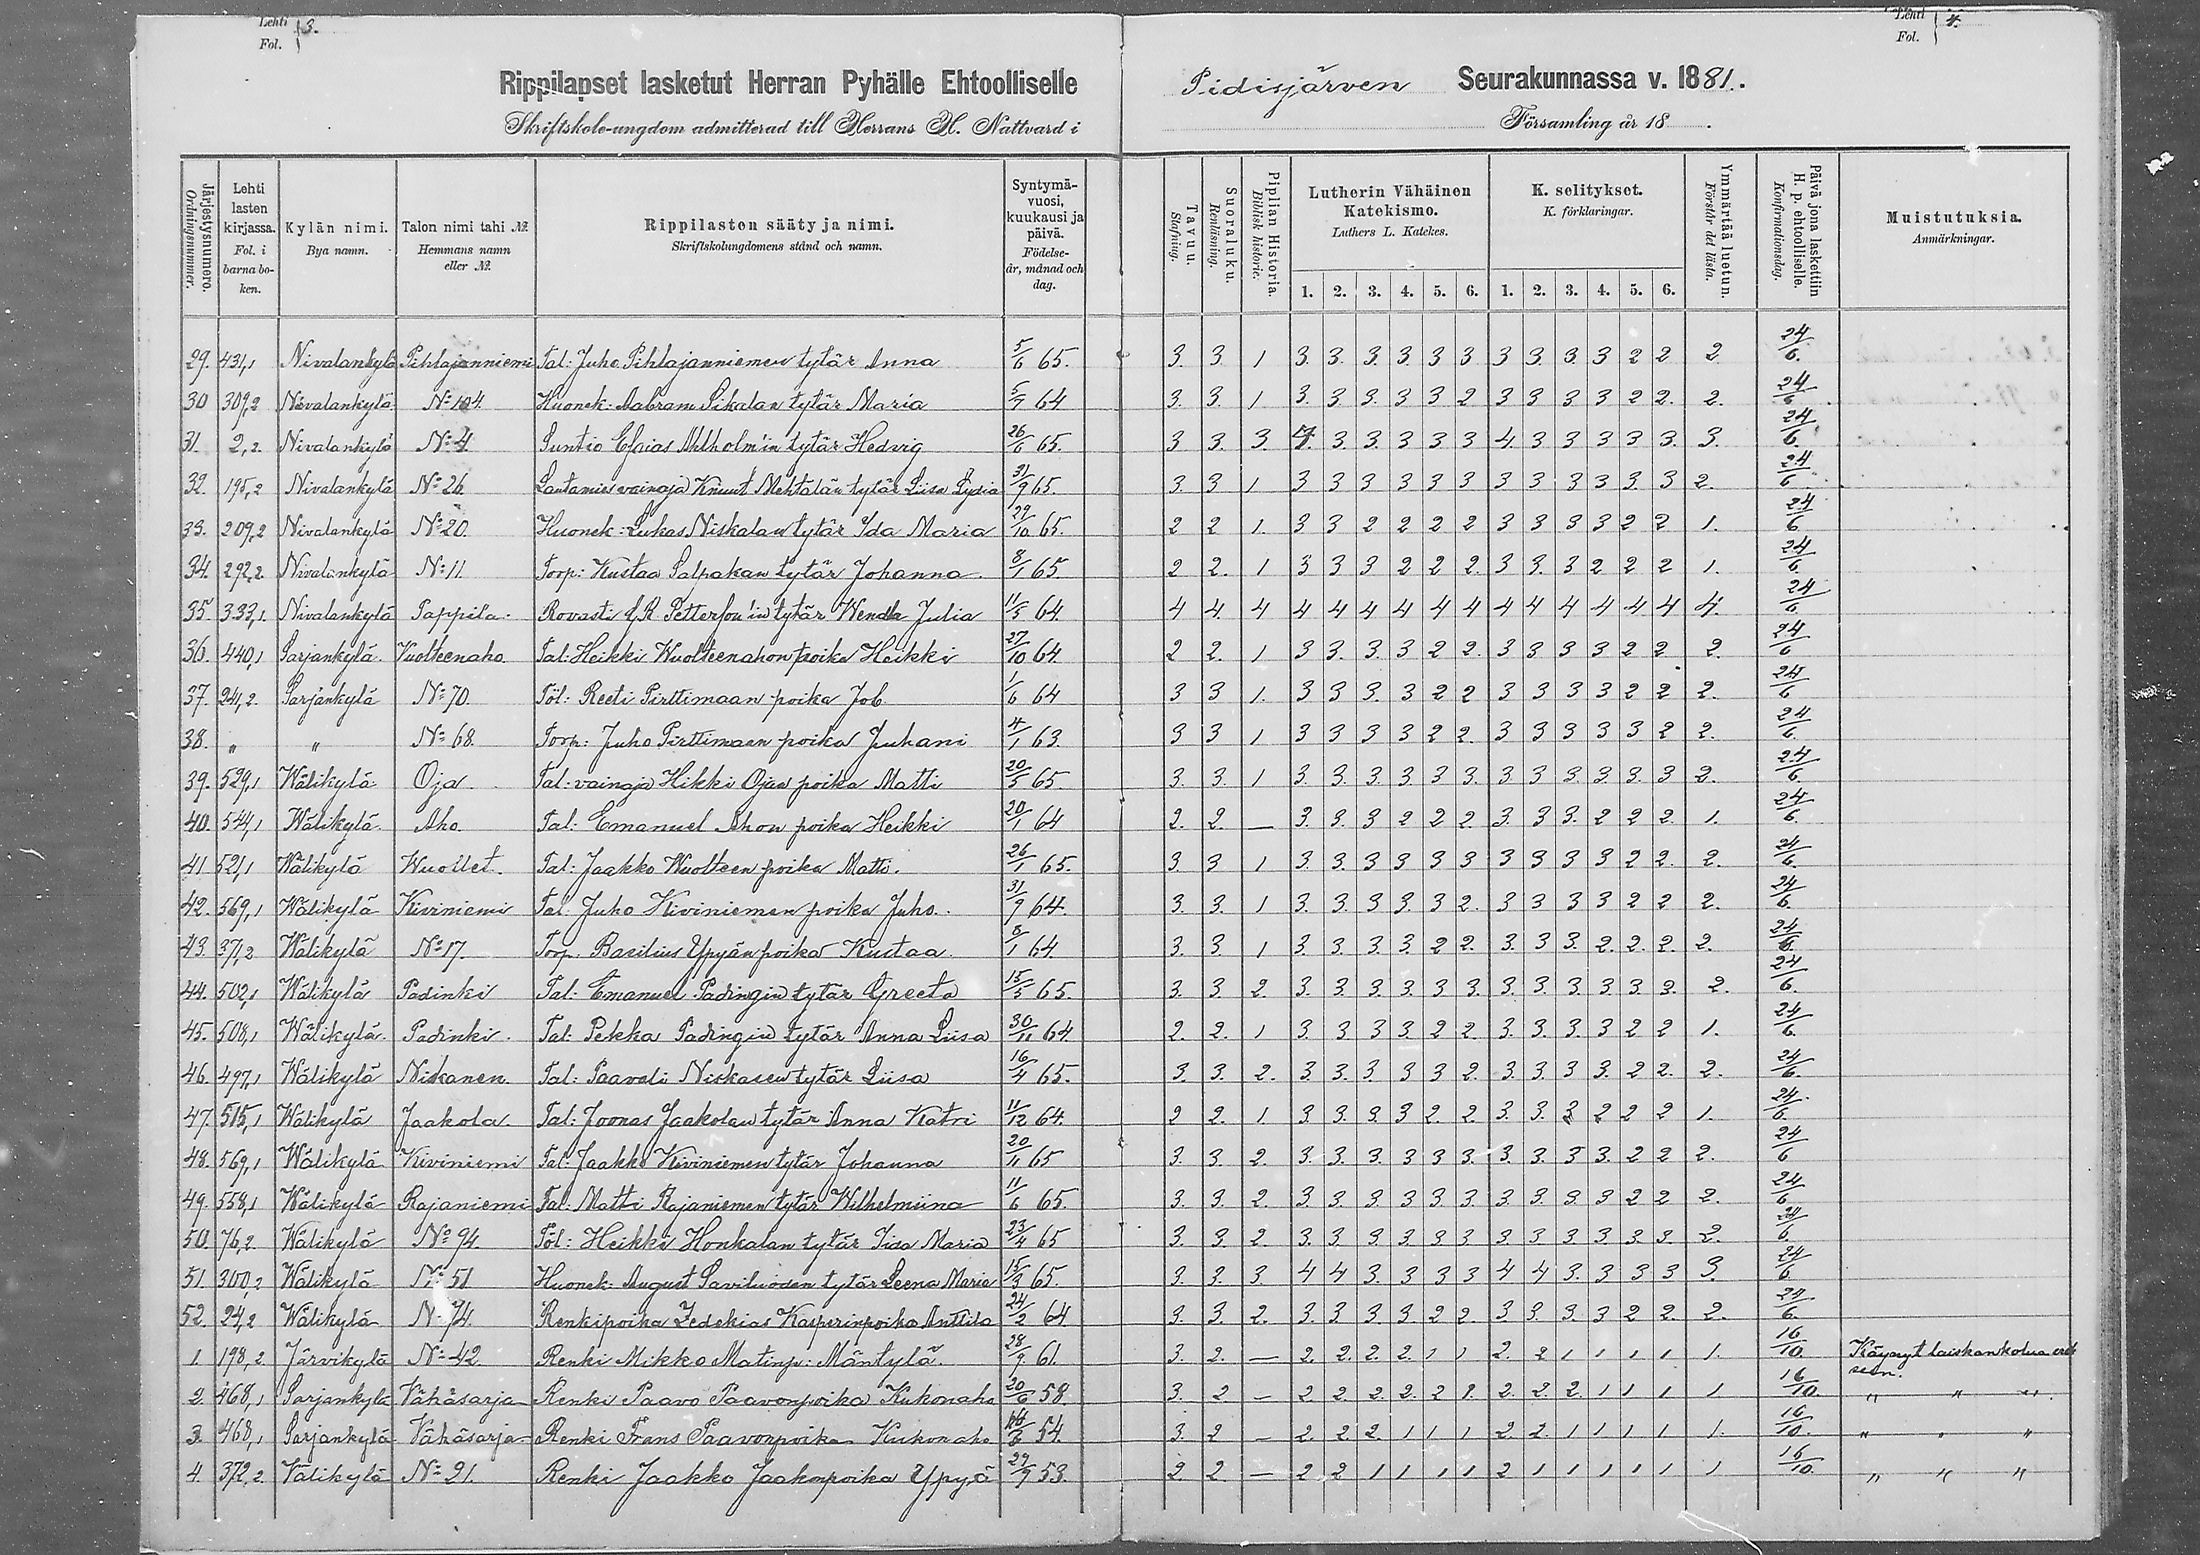 Lehti Fol. } 3.
Lehti Fol. } 4.
Rippilapset lasketut Herran Pyhälle Ehtoolliselle Pidisjärven Seurakunnassa v. 1881.
Skriftskole-ungdom admitterad till Herrans H. Nattvard i Församling år 18 .
Järjestysnumero. Ordningsnummer.
Lehti lasten kirjassa. Fol. i barna boken.
Kylän nimi. Bya namn.
Talon nimi tahi № Hemmans namn eller №.
Rippilasten sääty ja nimi. Skriftskolungdomens stånd och namn.
Syntymävuosi, kuukausi ja päivä. Födelse-år, månad och dag.
Tavuu. Stafning.
Suoraluku. Renläsning.
Piplian Historia. Biblisk historie.
Lutherin Vähäinen Katekismo. Luthers L. Katekes. 1. 2. 3. 4. 5. 6.
K. selitykset. K. förklaringar. 1. 2. 3. 4. 5. 6.
Ymmärtää luetun. Förstår det lästa.
Päivä jona laskettiin H. p. ehtoolliselle. Konfirmationsdag.
Muistutuksia. Anmärkningar.
29. 431,1 Nivalankylä Pihlajanniemi Tal: Juho Pihlajanniemen tytär Anna 5/6 65. 3. 3. 1 3. 3. 3. 3. 3 3 3 3 3. 3 2 2 2. 24/6.
30 309,2 Nivalankylä № 104. Huonek: Aabram Pikalan tytär Maria 5/7 64 3. 3. 1 3. 3 3. 3 3 2 3 3 3 3 2 2. 2. 24/6
31. 2,2. Nivalankylä № 4. Suntio Esaias Ahlholm'in tytär Hedvig 26/6 65. 3 3. 3. 4. 3 3 3 3 3 4 3 3 3 3 3. 3. 24/6.
32. 195,2 Nivalankylä № 26. Lautamies vainaja Knuut Mehtälän tytär Liisa Lydia 31/9 65. 3. 3 1 3 3 3 3 3 3 3 3 3 3 3. 3 2. 24/6
33. 209,2 Nivalankylä № 20. Huonek: Lukas Niskalan tytär Ida Maria 29/10 65. 2 2 1. 3 3 2 2 2 2 3 3 3 3 2 2 1. 24/6
34. 292,2. Nivalankylä № 11. Torp: Kustaa Salpakan tytär Johanna. 8/1 65 2 2. 1 3 3 3 2 2 2. 3 3. 3 2 2 2 1. 24/6.
35 333,1. Nivalankylä Pappila. Rovasti Petterson'in tytär Wenda Julia 11/5 64. 4 4. 4 4 4 4 4 4 4 4 4 4 4 4 4 4. 24/6
36. 440,1 Sarjankylä. Vuolteenaho. Tal: Heikki Wuolteenahon poika Heikki 27/10 64. 2 2. 1 3 3. 3. 3 2 2. 3 3 3 3 2 2 2. 24/6
37. 241,2. Sarjankylä № 70. Töl: Reeti Pirttimaan poika Job. 1/6 64 3 3 1. 3 3 3. 3 2 2 3 3 3 3 2 2 2. 24/6
38. " " № 68. Torp: Juho Pirttimaan poika Juhani 4/1 63. 3 3 1 3 3 3 3 2 2. 3 3 3 3 3 2 2. 24/6.
39. 529,1 Wälikylä Oja. Tal: vainaja Hikki Ojan poika Matti 20/5 65. 3. 3. 1 3. 3. 3. 3. 3 3. 3 3 3. 3. 3. 3 2. 24/6.
40. 544,1 Wälikylä. Aho. Tal: Emanuel Ahon poika Heikki 20/1 64 2. 2. — 3. 3. 3 2 2 2 3. 3 3. 2 2 2. 1. 24/6.
41 521,1 Wälikylä Wuollet. Tal: Jaakko Wuolteen poika Matti. 26/1 65. 3. 3 1 3. 3. 3. 3 3 3 3 3 3 3 2 2. 2. 24/6.
42. 569,1 Wälikylä Kiviniemi Tal: Juho Kiviniemen poika Juho. 31/9 64. 3. 3. 1 3. 3. 3. 3. 3 2. 3 3 3 3 2 2 2. 24/6.
43. 371,2 Wälikylä № 17. Torp. Basilius Ypyän poika Kustaa. 8/1 64. 3. 3 1 3 3. 3. 3. 2 2. 3. 3 3. 2. 2. 2. 2. 24/6.
44. 502,1 Wälikylä Padinki Tal: Emanuel Padingin tytär Greeta 15/5 65. 3. 3 2. 3. 3. 3. 3. 3. 3. 3. 3. 3. 3. 3. 3. 2. 24/6.
45. 508,1 Wälikylä. Padinki. Tal: Pekka Padingin tytär Anna Liisa 30/11 64. 2. 2. 1 3 3. 3 3. 2 2. 3. 3. 3. 3 2 2 1. 24/6.
46. 497,1 Wälikylä Niskanen. Tal: Paavali Niskasen tytär Liisa 16/4 65. 3. 3. 2. 3. 3. 3. 3 3 2. 3. 3. 3 3. 2 2. 2. 24/6.
47. 515,1 Wälikylä Jaakola. Tal: Joonas Jaakolan tytär Anna Katri 11/12 64. 2 2. 1. 3 3 3. 3 2. 2. 3. 3. 3 2 2 2 1. 24/6.
48. 569,1 Wälikylä Kiviniemi Tal: Jaakko Kiviniemen tytär Johanna 20/11 65 3. 3 2. 3. 3. 3. 3 3 3. 3. 3. 3 3. 2 2 2. 24/6
49. 558,1 Wälikylä Rajaniemi Tal: Matti Rajaniemen tytär Wilhelmiina 11/6 65. 3. 3 2. 3. 3. 3. 3. 3. 3. 3. 3. 3. 3 2 2 2. 24/6
50. 76,2. Wälikylä № 94. Töl: Heikki Honkalan tytär Iisa Maria 23/4 65 3. 3 2 3. 3. 3 3 3 3 3. 3. 3 3. 3. 3. 2. 24/6.
51. 300,2 Wälikylä № 51 Huonek: August Saviluodon tytär Leena Maria 15/3 65. 3. 3. 3. 4 4 3. 3 3 3 4 4 3. 3 3 3 3. 24/6.
52. 24,2 Wälikylä № 74. Renkipoika Zedekias Kasperinpoika Anttila 24/2 64 3. 3. 2. 3. 3. 3 3 2 2. 3. 3. 3. 3 2 2. 2. 24/6.
1. 198,2. Järvikylä № 42. Renki Mikko Matinp: Mäntylä. 28/9. 61. 3. 2. — 2. 2. 2. 2. 1 1 2. 2 1 1 1 1 1. 16/10. Käynyt laiskankolua
2. 468,1 Sarjankylä Vähäsarja Renki Paavo Paavonpoika Kukonaho 20/6 58. 3. 2 — 2 2 2. 2. 2 2. 2. 2. 2. 1 1 1 1 16/10. " " "
3. 468,1 Sarjankylä Vähäsarja Renki Frans Paavonpoika Kukonaho 54. 3. 2 — 2. 2. 2. 1 1 1 2. 2. 1 1 1 1 1. 16/10. " " "
4. 372,2. Välikylä № 21. Renki Jaakko Jaakonpoika Ypyä 29/9 53. 2 2 — 2 2 1 1 1 1 2 1 1 1 1 1 1 16/10. " " "